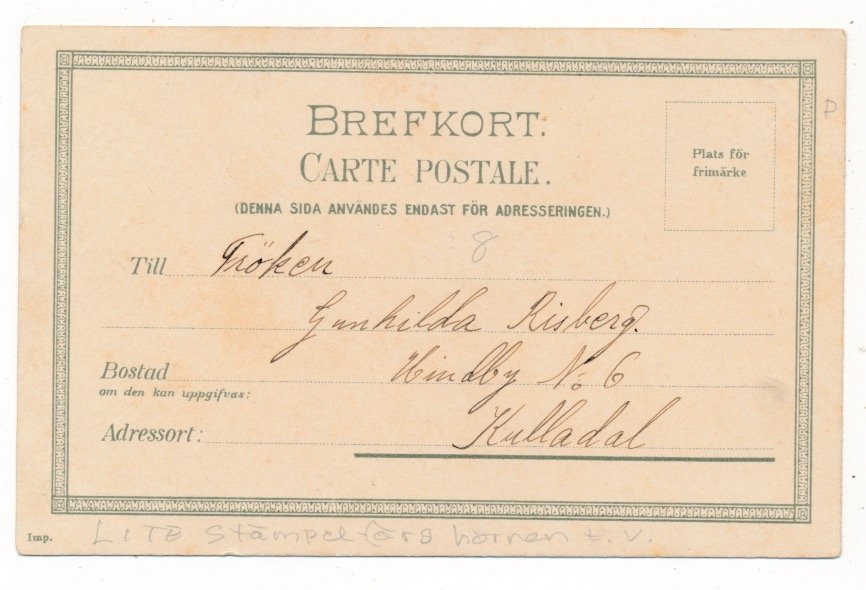 BREFKORT.
CARTE POSTALE.
(DENNA SIDA ANVÄNDES ENDAST FÖR ADRESSERINGEN.)
Plats för
frimärke
P
8
Till Fröken
Gunhilda Risberg.
Bostad Hindby No 6
om den kan uppgifvas:
Adressort: Kulladal
Imp.
LITE stämpelfärg hörnen t.v.